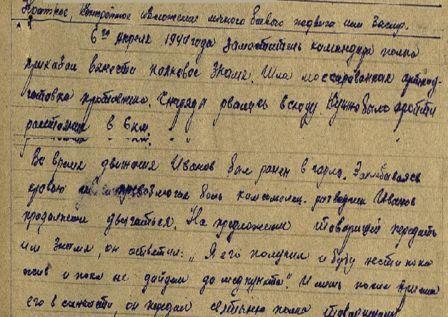 Краткое, конкретное изложение личного боевого подвига или заслуг.
6го апреля 1944 года заместитель командира полка
приказал вынести полковое знамя. Шла массированная артпод-
готовка противника. Снаряды рвались всюду. Нужно было пройти
расстояние в 6 км.
Во время движения Иванов был ранен в горло. Захлебываясь
кровью превозмогая боль комсомолец разведчик Иванов
продолжал двигаться. На предложение товарищей передать
им знамя, он ответил: "Я его получил и буду нести пока
жив и пока не дойдем до медпункта." И лишь когда
его в, он передал полка товарищам